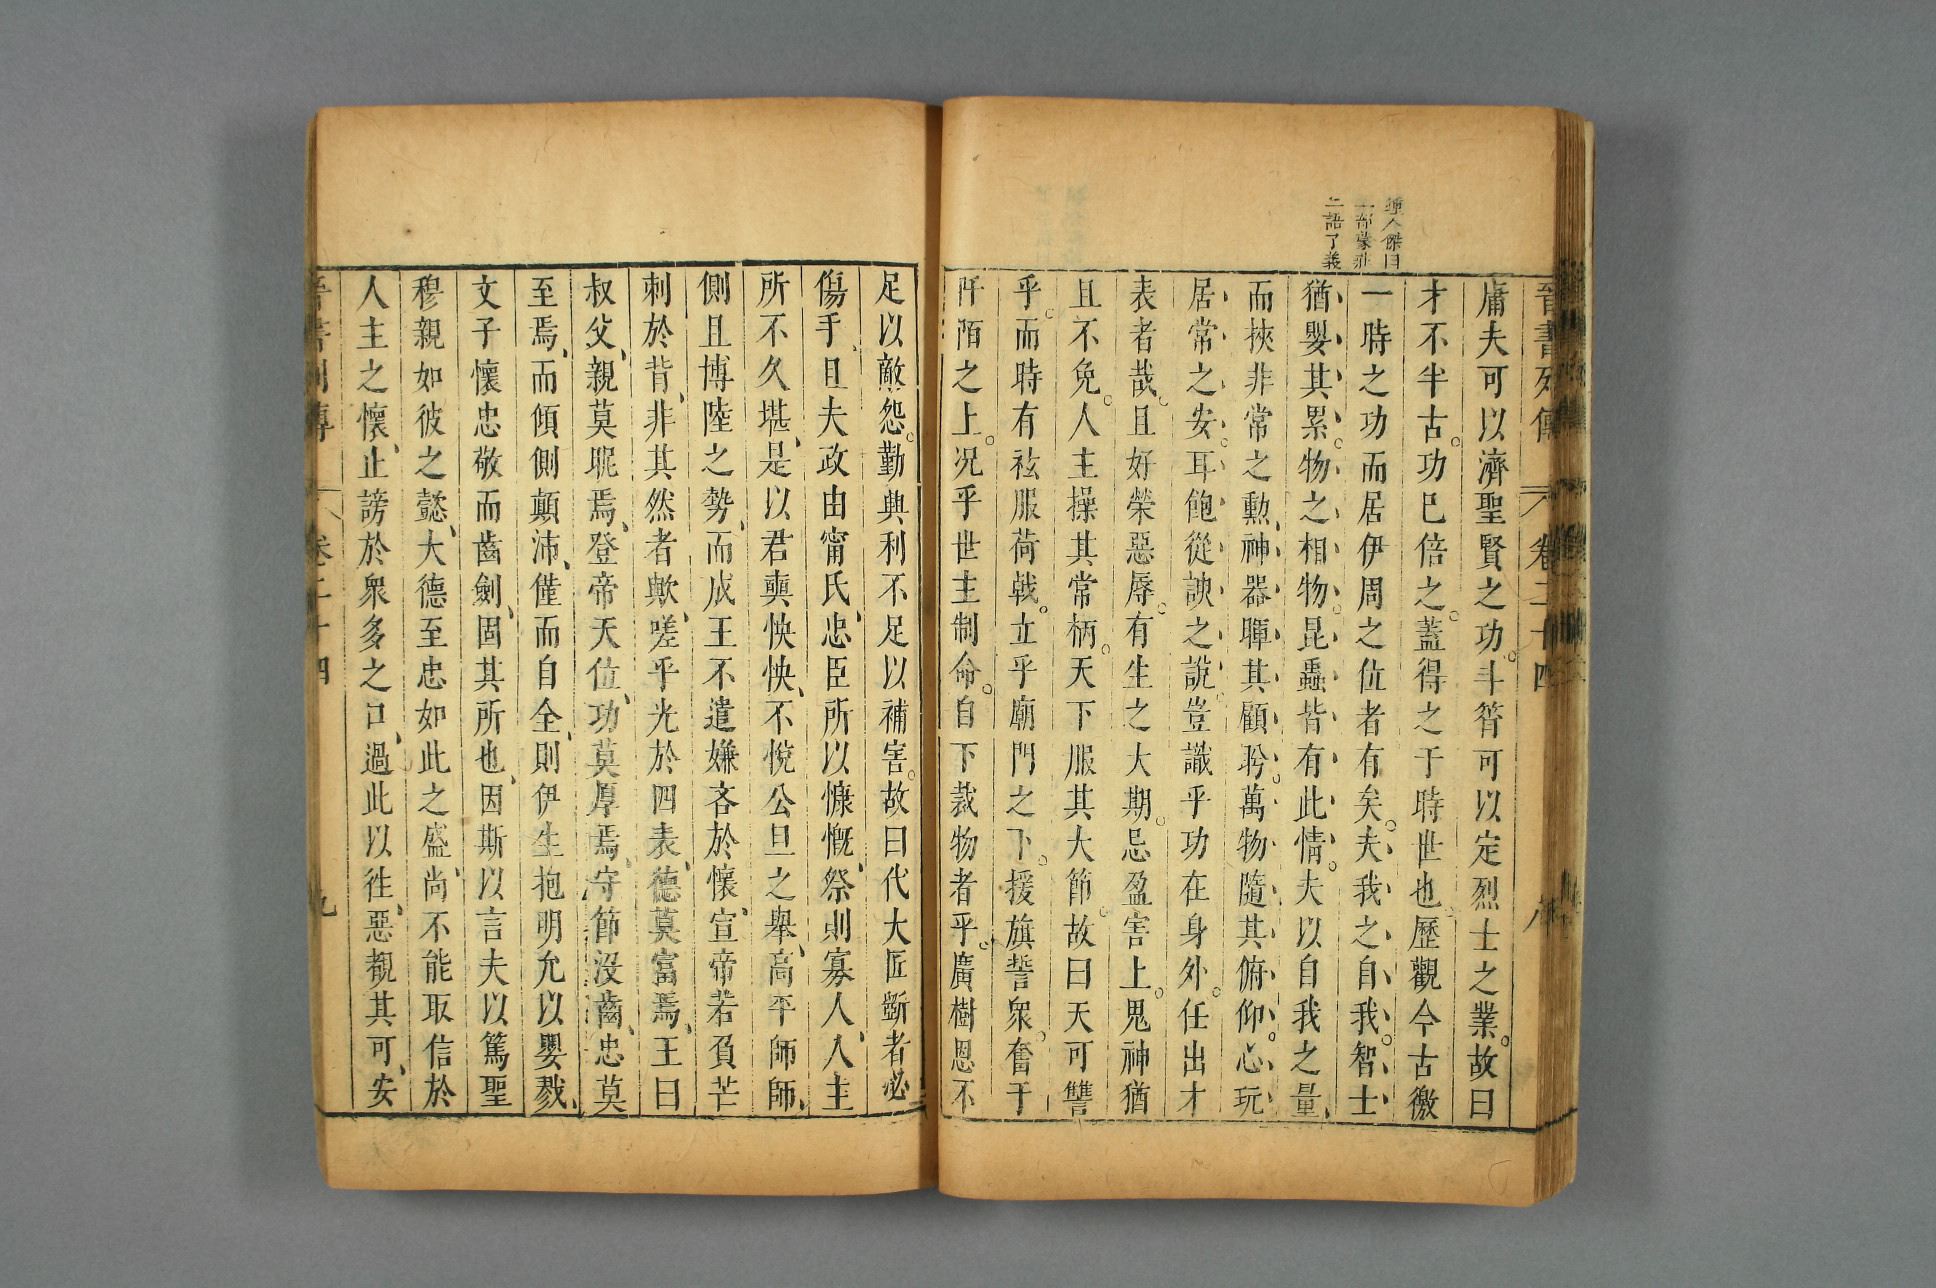 晉書列傳 卷二十四 八
庸夫可以濟聖賢之功。斗筲可以定烈士之業。故曰
才不半古。功已倍之。蓋得之于時世也。歷觀今古徼
一時之功而居伊周之位者有矣。夫我之自我。智士
猶嬰其累。物之相物。昆蟲皆有此情。夫以自我之量、
而挾非常之勳、神器暉其顧眄。萬物隨其俯仰。心玩
居常之安。耳飽從諛之說。豈識乎功在身外。任出才
表者哉。且好榮惡辱。有生之大期。忌盈害上。鬼神猶
且不免。人主操其常柄。天下服其大節。故曰天可讐
乎。而時有袨服荷戟。立乎廟門之下。援旗誓衆。奮于
阡陌之上。况乎世主制命。自下裁物者乎。廣樹恩不
二語了義
足以敵怨。勤興利不足以補害。故曰代大匠斲者必
傷手、且夫政由甯氏、忠臣所以慷慨、祭則寡人、人主
所不久堪、是以君奭怏怏、不悅公旦之舉、高平師師、
側且博陸之勢、而成王不遣嫌吝於懷、宣帝若負芒
刺於背、非其然者歟、嗟乎光於四表、德莫富焉、王曰
叔父、親莫昵焉、登帝天位、功莫厚焉、守節沒齒、忠莫
至焉、而傾側顛沛、僅而自全、則伊生抱明允以嬰戮、
文子懷忠敬而齒劍、固其所也、因斯以言夫以篤聖
穆親如彼之懿、大德至忠如此之盛、尚不能取信於
人主之懷、止謗於衆多之口、過此以徃、惡覩其可、安
晉書列傳 卷二十四 九